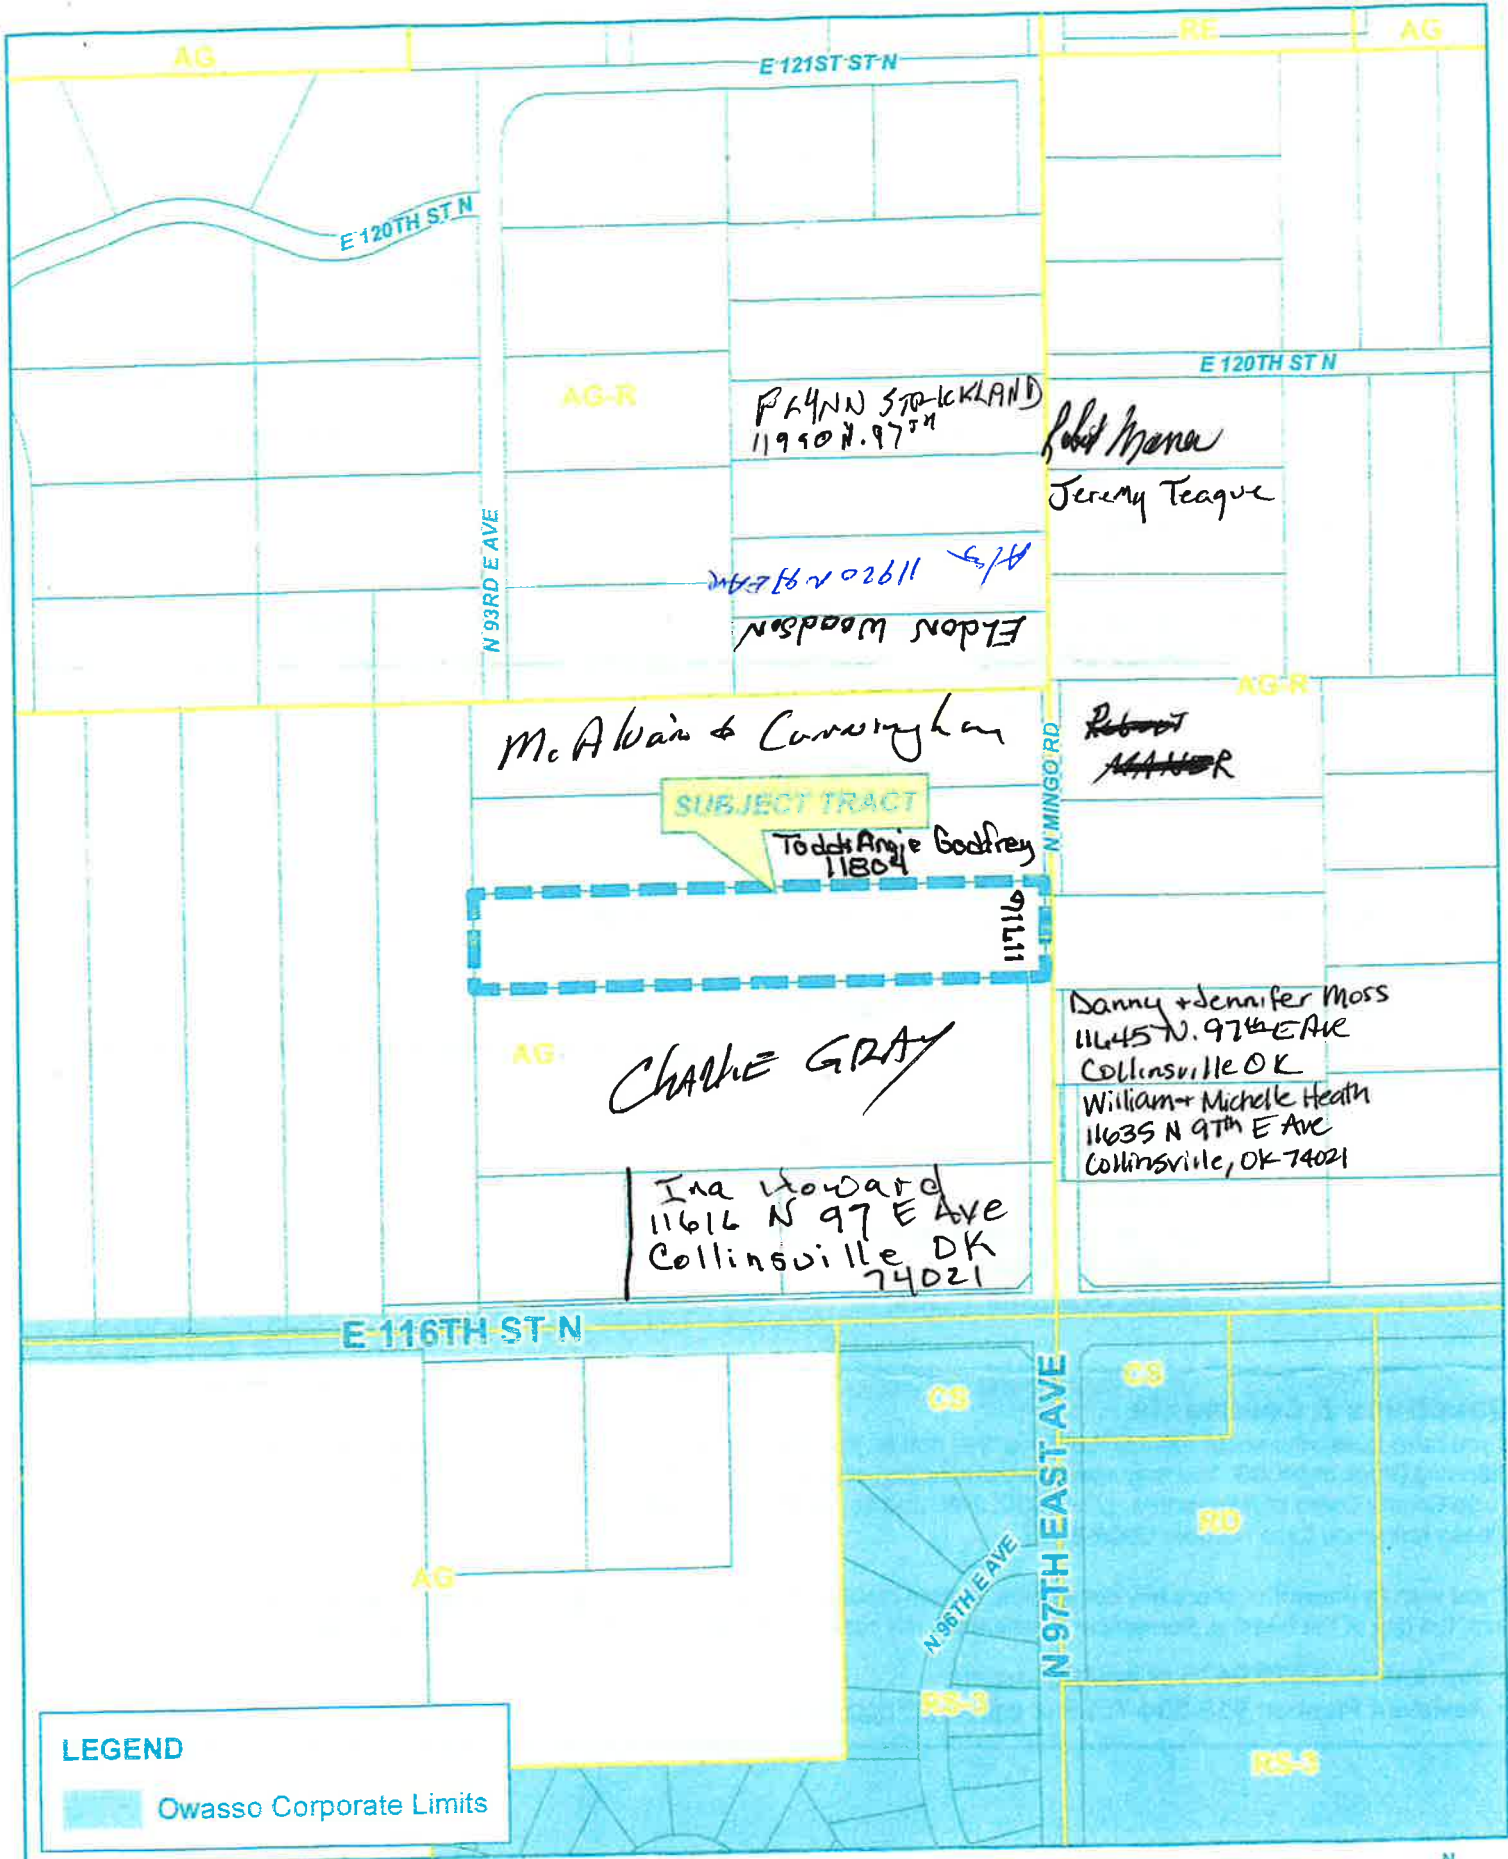 AG
RE
AG
E 121ST ST N
E 120TH ST N
E 120TH ST N
AG-R
FLYNN STRICKLAND
11990 N. 97TH
Robert Maner
Jeremy Teague
N 93RD E AVE
11920 N 97 E AVE
ELDON WOODSON
AG-R
McAlvain & Cunningham
Robert
MANER
N MINGO RD
SUBJECT TRACT
Todd & Angie Godfrey
11804
11716
AG
CHARLIE GRAY
Danny + Jennifer Moss
11645 N. 97th E Ave
Collinsville OK
William + Michelle Heath
11635 N 97th E Ave
Collinsville, OK 74021
Ina Howard
11616 N 97 E Ave
Collinsville OK
74021
E 116TH ST N
CS
CS
N 97TH EAST AVE
RD
N 96TH E AVE
AG
RS-3
RS-3
LEGEND
Owasso Corporate Limits
N